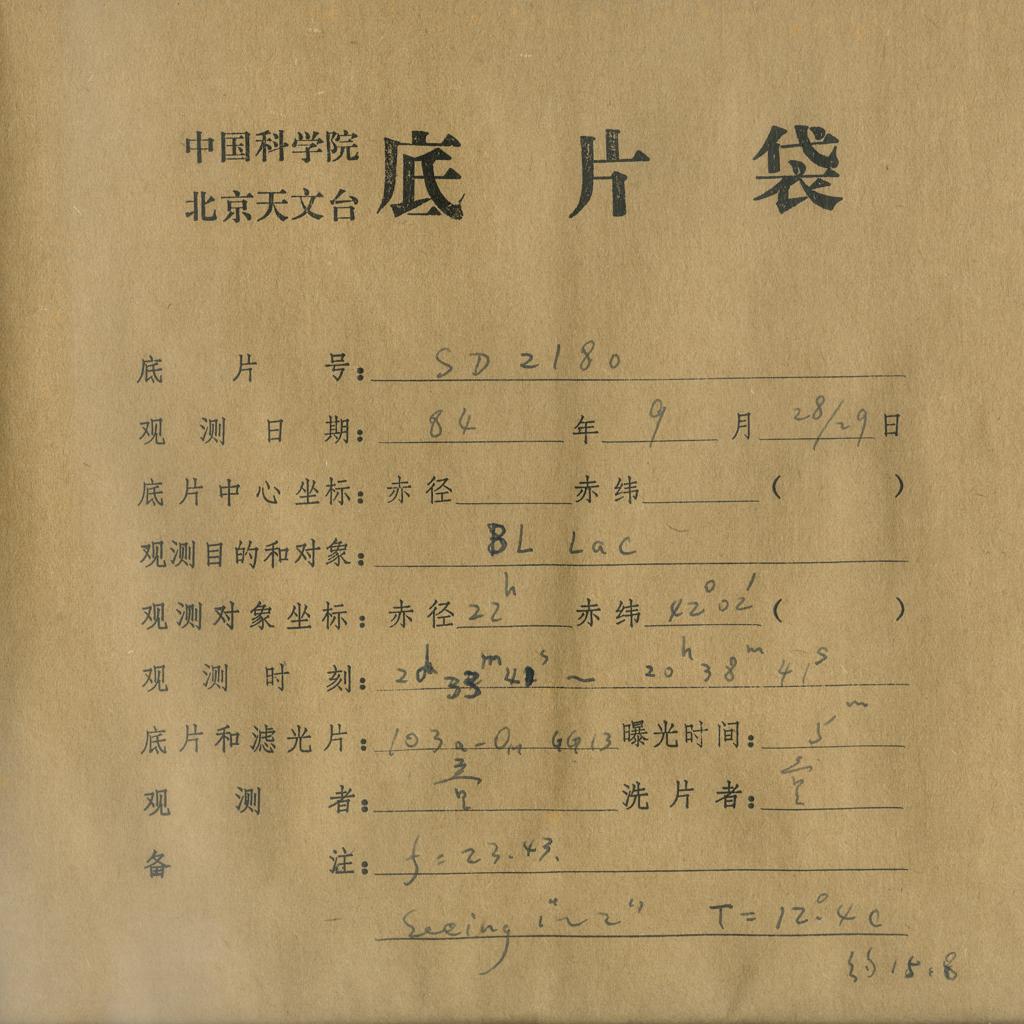 中国科学院
北京天文台
底片袋
底片号：SD 2180
观测日期：84年9月28/29日
底片中心坐标：赤径 赤纬 （ ）
观测目的和对象：BL Lac
观测对象坐标：赤径22h 赤纬42°02′（ ）
观测时刻：20h 33m 41s ~ 20h 38m 41s
底片和滤光片：103a-O GG13 曝光时间：5m
观测者： 洗片者：
备注：f=23.43.
Seeing 1"~2" T=12°.4C
约15.8